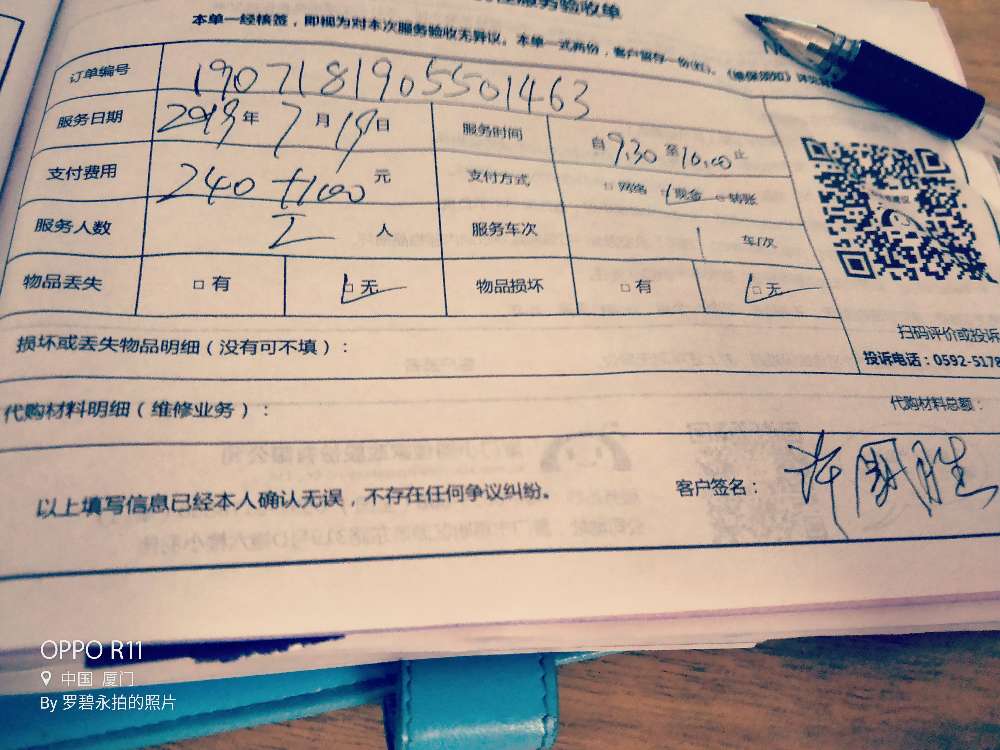 服务验收单
本单一经核签，即视为对本次服务验收无异议。本单一式两份，客户留存一份(红)。《维保须知》详见
订单编号 190718190550 1463
服务日期 2019年 7月19日 服务时间 自9.30至10.00止
支付费用 240+100 元 支付方式 □ 网络 □ 现金 □ 转账
服务人数 2 人 服务车次 1 车/次
物品丢失 □ 有 □ 无 物品损坏 □ 有 □ 无
损坏或丢失物品明细（没有可不填）：
扫码评价或投诉
投诉电话：0592-5178
代购材料明细（维修业务）：
代购材料总额：
以上填写信息已经本人确认无误，不存在任何争议纠纷。
客户签名： 许国胜
OPPO R11
中国 厦门
By 罗碧永拍的照片